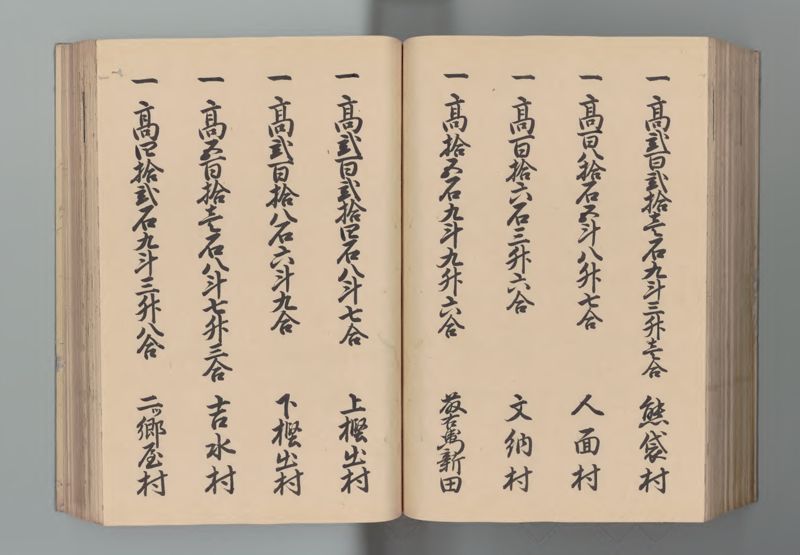 一 高弐百弐拾壱石九斗三升壱合 熊袋村
一 高百八拾石五斗八升七合 人面村
一 高百拾六石三升六合 文納村
一 高拾五石九斗九升六合 右衛新田
一 高弐百弐拾四石八斗七合 上樫出村
一 高弐百拾八石六斗九合 下樫出村
一 高五百拾壱石八斗七升三合 吉水村
一 高四拾弐石九斗三升八合 二ッ郷屋村